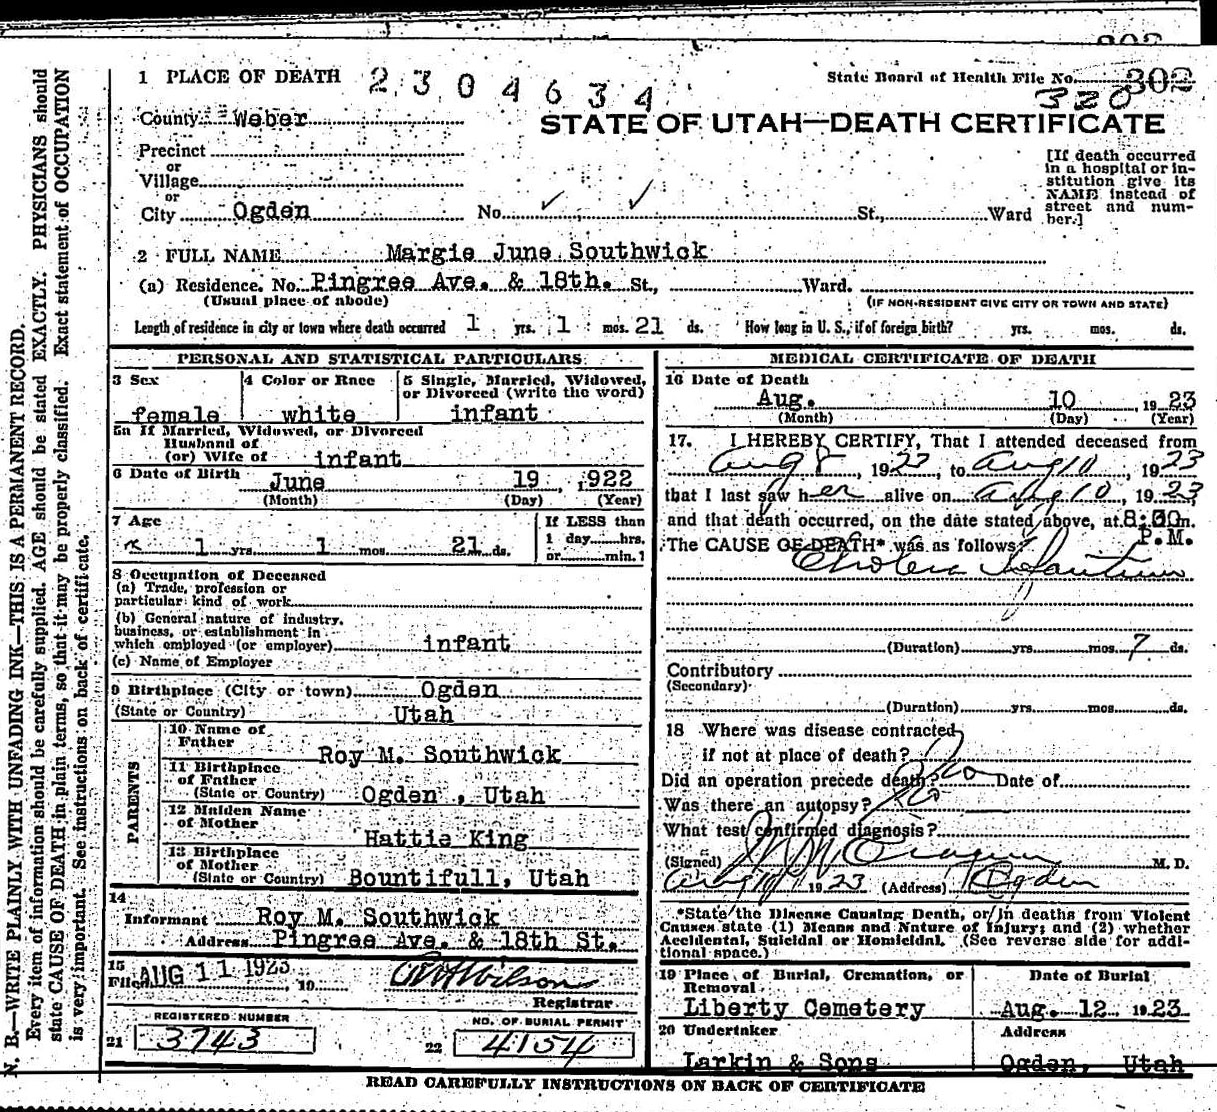 302
1 PLACE OF DEATH 2304634 State Board of Health File No. 302
320
County Weber
STATE OF UTAH—DEATH CERTIFICATE
Precinct
or
Village
or
City Ogden No. ✓ ✓ St., Ward
[If death occurred
in a hospital or in-
stitution give its
NAME instead of
street and num-
ber.]
2 FULL NAME Margie June Southwick
(a) Residence. No. Pingree Ave. & 18th. St., Ward.
(Usual place of abode) (IF NON-RESIDENT GIVE CITY OR TOWN AND STATE)
Length of residence in city or town where death occurred 1 yrs. 1 mos. 21 ds. How long in U. S., if of foreign birth? yrs. mos. ds.
PERSONAL AND STATISTICAL PARTICULARS
3 Sex
female
4 Color or Race
white
5 Single, Married, Widowed,
or Divorced (write the word)
infant
5a If Married, Widowed, or Divorced
Husband of
(or) Wife of infant
6 Date of Birth June 19, 1922
(Month) (Day) (Year)
7 Age
1 yrs. 1 mos. 21 ds.
If LESS than
1 day hrs.
or min.?
8 Occupation of Deceased
(a) Trade, profession or
particular kind of work
(b) General nature of industry,
business, or establishment in
which employed (or employer) infant
(c) Name of Employer
9 Birthplace (City or town) Ogden
(State or Country) Utah
PARENTS
10 Name of
Father Roy M. Southwick
11 Birthplace
of Father
(State or Country) Ogden, Utah
12 Maiden Name
of Mother
Hattie King
13 Birthplace
of Mother
(State or Country) Bountifull, Utah
14
Informant Roy M. Southwick
Address Pingree Ave. & 18th St.
15
Filed AUG 11 1923, 19
Wilson
Registrar
REGISTERED NUMBER
21 3743
NO. OF BURIAL PERMIT
22 4154
MEDICAL CERTIFICATE OF DEATH
16 Date of Death
Aug. 10, 1923
(Month) (Day) (Year)
17. I HEREBY CERTIFY, That I attended deceased from
Aug 8, 1923, to Aug 10, 1923
that I last saw her alive on Aug 10, 1923
and that death occurred, on the date stated above, at 8:30 m.
P.M.
The CAUSE OF DEATH* was as follows:
Cholera Infantum
(Duration) yrs. mos. 7 ds.
Contributory
(Secondary)
(Duration) yrs. mos. ds.
18 Where was disease contracted
if not at place of death?
Did an operation precede death? No Date of
Was there an autopsy? No
What test confirmed diagnosis?
(Signed) M. D.
Aug 1923 (Address) Ogden
*State the Disease Causing Death, or in deaths from Violent
Causes state (1) Means and Nature of Injury; and (2) whether
Accidental, Suicidal or Homicidal. (See reverse side for addi-
tional space.)
19 Place of Burial, Cremation, or
Removal
Liberty Cemetery
Date of Burial
Aug. 12 1923
20 Undertaker
Larkin & Sons
Address
Ogden, Utah
READ CAREFULLY INSTRUCTIONS ON BACK OF CERTIFICATE
N. B.—WRITE PLAINLY WITH UNFADING INK—THIS IS A PERMANENT RECORD.
Every item of information should be carefully supplied. AGE should be stated EXACTLY. PHYSICIANS should
state CAUSE OF DEATH in plain terms, so that it may be properly classified. Exact statement of OCCUPATION
is very important. See instructions on back of certificate.